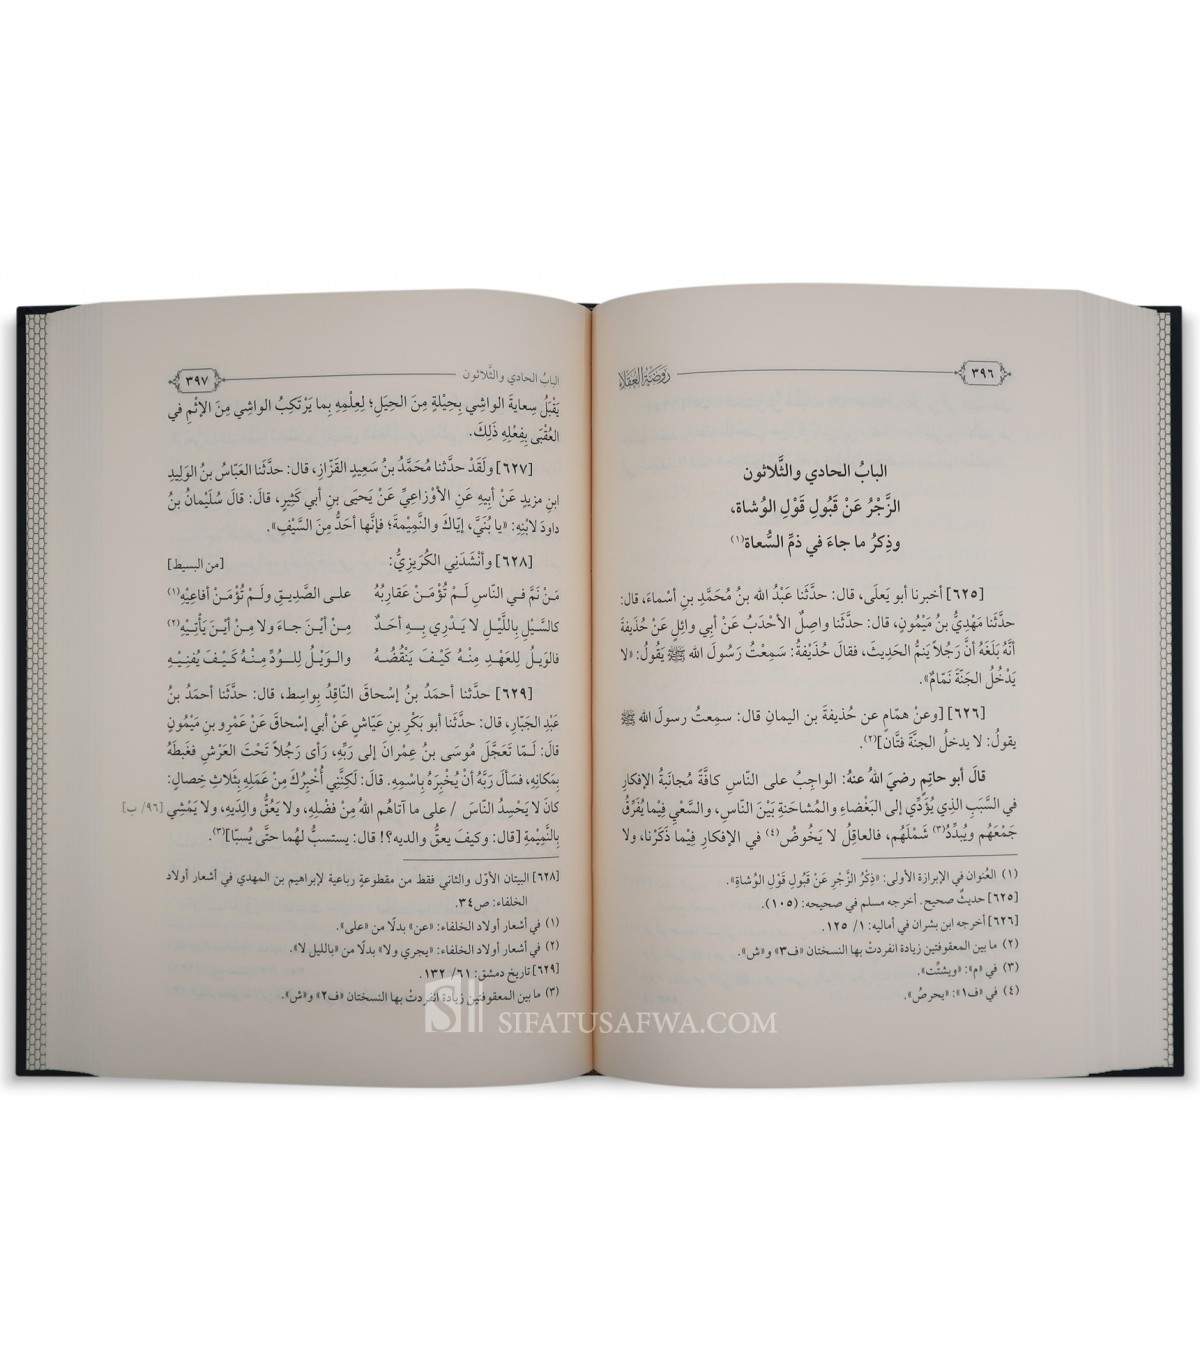 ٣٩٦
روضة العقلاء
البابُ الحادي والثَّلاثون
الزَّجْرُ عَنْ قَبُولِ قَوْلِ الوُشاة،
وذِكرُ ما جاءَ في ذمِّ السُّعاة(١)
[٦٢٥] أخبرنا أبو يَعلَى، قال: حدَّثَنا عَبْدُ الله بنُ مُحَمَّدِ بنِ أسْماءَ، قال:
حدَّثَنا مَهْدِيُّ بنُ مَيْمُونٍ، قال: حدَّثَنا واصِلٌ الأحْدَبُ عَنْ أبي وائِلٍ عَنْ حُذَيفةَ
أنَّهُ بَلَغَهُ أنَّ رَجُلاً يَنمُّ الحَدِيثَ، فقالَ حُذَيْفةُ: سَمِعْتُ رَسُولَ الله ﷺ يَقُولُ: «لا
يَدْخُلُ الجَنّةَ نَمّامٌ».
[٦٢٦] [وعنْ همّامٍ عن حُذيفةَ بن اليمانِ قال: سمِعتُ رسولَ الله ﷺ
يقولُ: لا يدخلُ الجنَّةَ قتَّان](٢).
قالَ أبو حاتِمٍ رضيَ اللهُ عنهُ: الواجِبُ على النّاسِ كافّةً مُجانَبةُ الإفكارِ
في السَّبَبِ الذي يُؤَدِّي إلى البَغْضاءِ والمُشاحَنةِ بَيْنَ النّاسِ، والسَّعْيِ فِيْما يُفَرِّقُ
جَمْعَهُم ويُبدِّدُ(٣) شَمْلَهُم، فالعاقِلُ لا يَخُوضُ(٤) في الإفكارِ فِيْما ذَكَرْنا، ولا
(١) العُنوان في الإبرازة الأولى: «ذِكْرُ الزَّجْرِ عَنْ قَبُولِ قَوْلِ الوُشاةِ».
[٦٢٥] حديثٌ صحيح. أخرجه مسلم في صحيحه: (١٠٥).
[٦٢٦] أخرجه ابن بشران في أماليه: ١/ ١٢٥.
(٢) ما بين المعقوفتين زيادة انفردتْ بها النسختان «ف٣» و«ش».
(٣) في «م»: «ويشتِّت».
(٤) في «ف١»: «يحرصُ».
البابُ الحادي والثَّلاثون
٣٩٧
يَقْبَلُ سِعايةَ الواشِي بِحِيْلةٍ مِنَ الحِيَلِ؛ لِعِلْمِهِ بِما يَرْتَكِبُ الواشِي مِنَ الإثْمِ في
العُقْبَى بِفِعْلِهِ ذَلِكَ.
[٦٢٧] ولَقَدْ حدَّثنا مُحَمَّدُ بنُ سَعِيدٍ القَزّاز، قال: حدَّثَنا العَبّاسُ بنُ الوَلِيدِ
ابنِ مزيدٍ عَنْ أبِيهِ عَنِ الأوْزاعِيِّ عَنْ يَحيَى بنِ أبي كَثِيرٍ، قالَ: قالَ سُلَيْمانُ بنُ
داودَ لابْنِهِ: «يا بُنَيَّ، إيّاكَ والنَّمِيْمةَ؛ فإنَّها أحَدُّ مِنَ السَّيْفِ».
[٦٢٨] وأنْشَدَنِي الكُرَيزِيُّ: [من البسيط]
مَنْ نَمَّ في النّاسِ لَمْ تُؤْمَنْ عَقارِبُهُ على الصَّدِيقِ ولَمْ تُؤْمَنْ أفاعِيْهِ(١)
كالسَّيْلِ بِاللَّيْلِ لا يَدْرِي بِهِ أحَدٌ مِنْ أيْنَ جاءَ ولا مِنْ أيْنَ يَأْتِيْهِ(٢)
فالوَيلُ لِلعَهْدِ مِنْهُ كَيْفَ يَنْقُضُهُ والوَيْلُ لِلوُدِّ مِنْهُ كَيْفَ يُفنِيْهِ
[٦٢٩] حدَّثَنا أحمَدُ بنُ إسْحاقَ النّاقِدُ بِواسِط، قال: حدَّثَنا أحمَدُ بنُ
عَبْدِ الجَبّارِ، قال: حدَّثَنا أبو بَكْرِ بنِ عَيّاشٍ عَنْ أبي إسْحاقَ عَنْ عَمْرِو بنِ مَيْمُونٍ
قالَ: لَمّا تَعَجَّلَ مُوسَى بنُ عِمْرانَ إلى رَبِّهِ، رَأى رَجُلاً تَحْتَ العَرْشِ فغَبَطَهُ
بِمَكانِهِ، فسَألَ رَبَّهُ أنْ يُخْبِرَهُ بِاسْمِهِ. قالَ: لَكِنَّنِي أُخْبِرُكَ مِنْ عَمَلِهِ بِثَلاثِ خِصالٍ:
كانَ لا يَحْسِدُ النّاسَ / على ما آتاهُم اللهُ مِنْ فَضْلِهِ، ولا يَعُقُّ والِدَيهِ، ولا يَمْشِي [٩٦/ ب]
بِالنَّمِيْمةِ [قال: وكيفَ يعقُّ والديه؟! قال: يستسبُّ لهُما حتَّى يُسبّا](٣).
[٦٢٨] البيتان الأوّل والثاني فقط من مقطوعةٍ رباعية لإبراهيم بن المهدي في أشعار أولاد
الخلفاء: ص٣٤.
(١) في أشعار أولاد الخلفاء: «عن» بدلًا من «على».
(٢) في أشعار أولاد الخلفاء: «يجري ولا» بدلًا من «بالليل لا».
[٦٢٩] تاريخ دمشق: ٦١/ ١٣٢.
(٣) ما بين المعقوفتين زيادة انفردتْ بها النسختان «ف٢» و«ش».
SIFATUSAFWA.COM